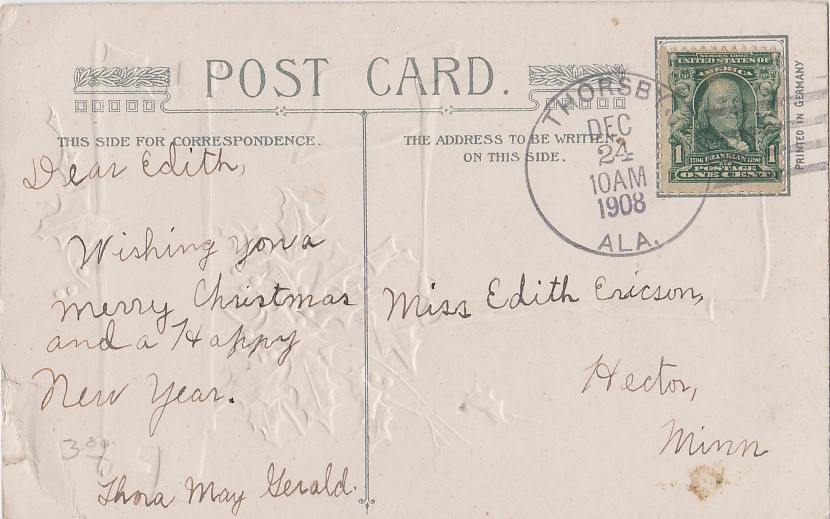 POST CARD.
THIS SIDE FOR CORRESPONDENCE.
THE ADDRESS TO BE WRITTEN
ON THIS SIDE.
THORSBY,
DEC
24
10AM
1908
ALA.
SERIES 1902
UNITED STATES OF
AMERICA
1 1706 FRANKLIN 1790 1
POSTAGE
ONE CENT
PRINTED IN GERMANY
Dear Edith,
Wishing you a
merry Christmas
and a Happy
New Year.
Thora May Gerald.
Miss Edith Ericson,
Hector,
Minn